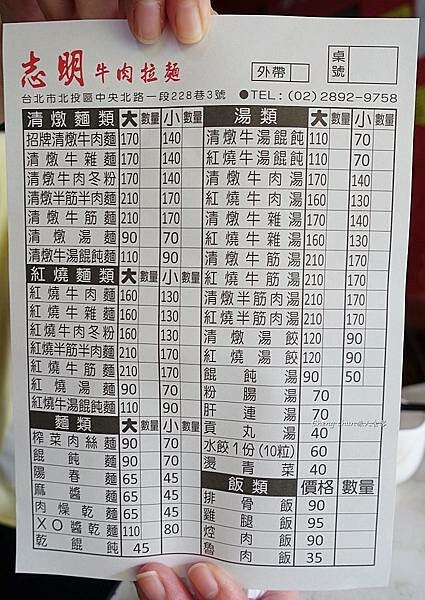 志明牛肉拉麵
外帶
桌號
台北市北投區中央北路一段228巷3號 ●TEL：(02) 2892-9758
清燉麵類 大 數量 小 數量
招牌清燉牛肉麵 170 140
清燉牛雜麵 170 140
清燉牛肉冬粉 170 140
清燉半筋半肉麵 210 170
清燉牛筋麵 210 170
清燉湯麵 90 70
清燉牛湯餛飩麵 110 90
紅燒麵類 大 數量 小 數量
紅燒牛肉麵 160 130
紅燒牛雜麵 160 130
紅燒牛肉冬粉 160 130
紅燒半筋半肉麵 210 170
紅燒牛筋麵 210 170
紅燒湯麵 90 70
紅燒牛湯餛飩麵 110 90
麵類 大 數量 小 數量
榨菜肉絲麵 90 70
餛飩麵 90 70
陽春麵 65 45
麻醬麵 65 45
肉燥乾麵 65 45
XO醬乾麵 110 80
乾餛飩 45
湯類 大 數量 小 數量
清燉牛湯餛飩 110 70
紅燒牛湯餛飩 110 70
清燉牛肉湯 170 140
紅燒牛肉湯 160 130
清燉牛雜湯 170 140
紅燒牛雜湯 160 130
清燉牛筋湯 210 170
紅燒牛筋湯 210 170
清燉半筋肉湯 210 170
紅燒半筋肉湯 210 170
清燉湯餃 120 90
紅燒湯餃 120 90
餛飩湯 90 50
粉腸湯 70
肝連湯 70
貢丸湯 40
水餃1份(10粒) 60
燙青菜 40
飯類 價格 數量
排骨飯 90
雞腿飯 95
焢肉飯 90
魯肉飯 35